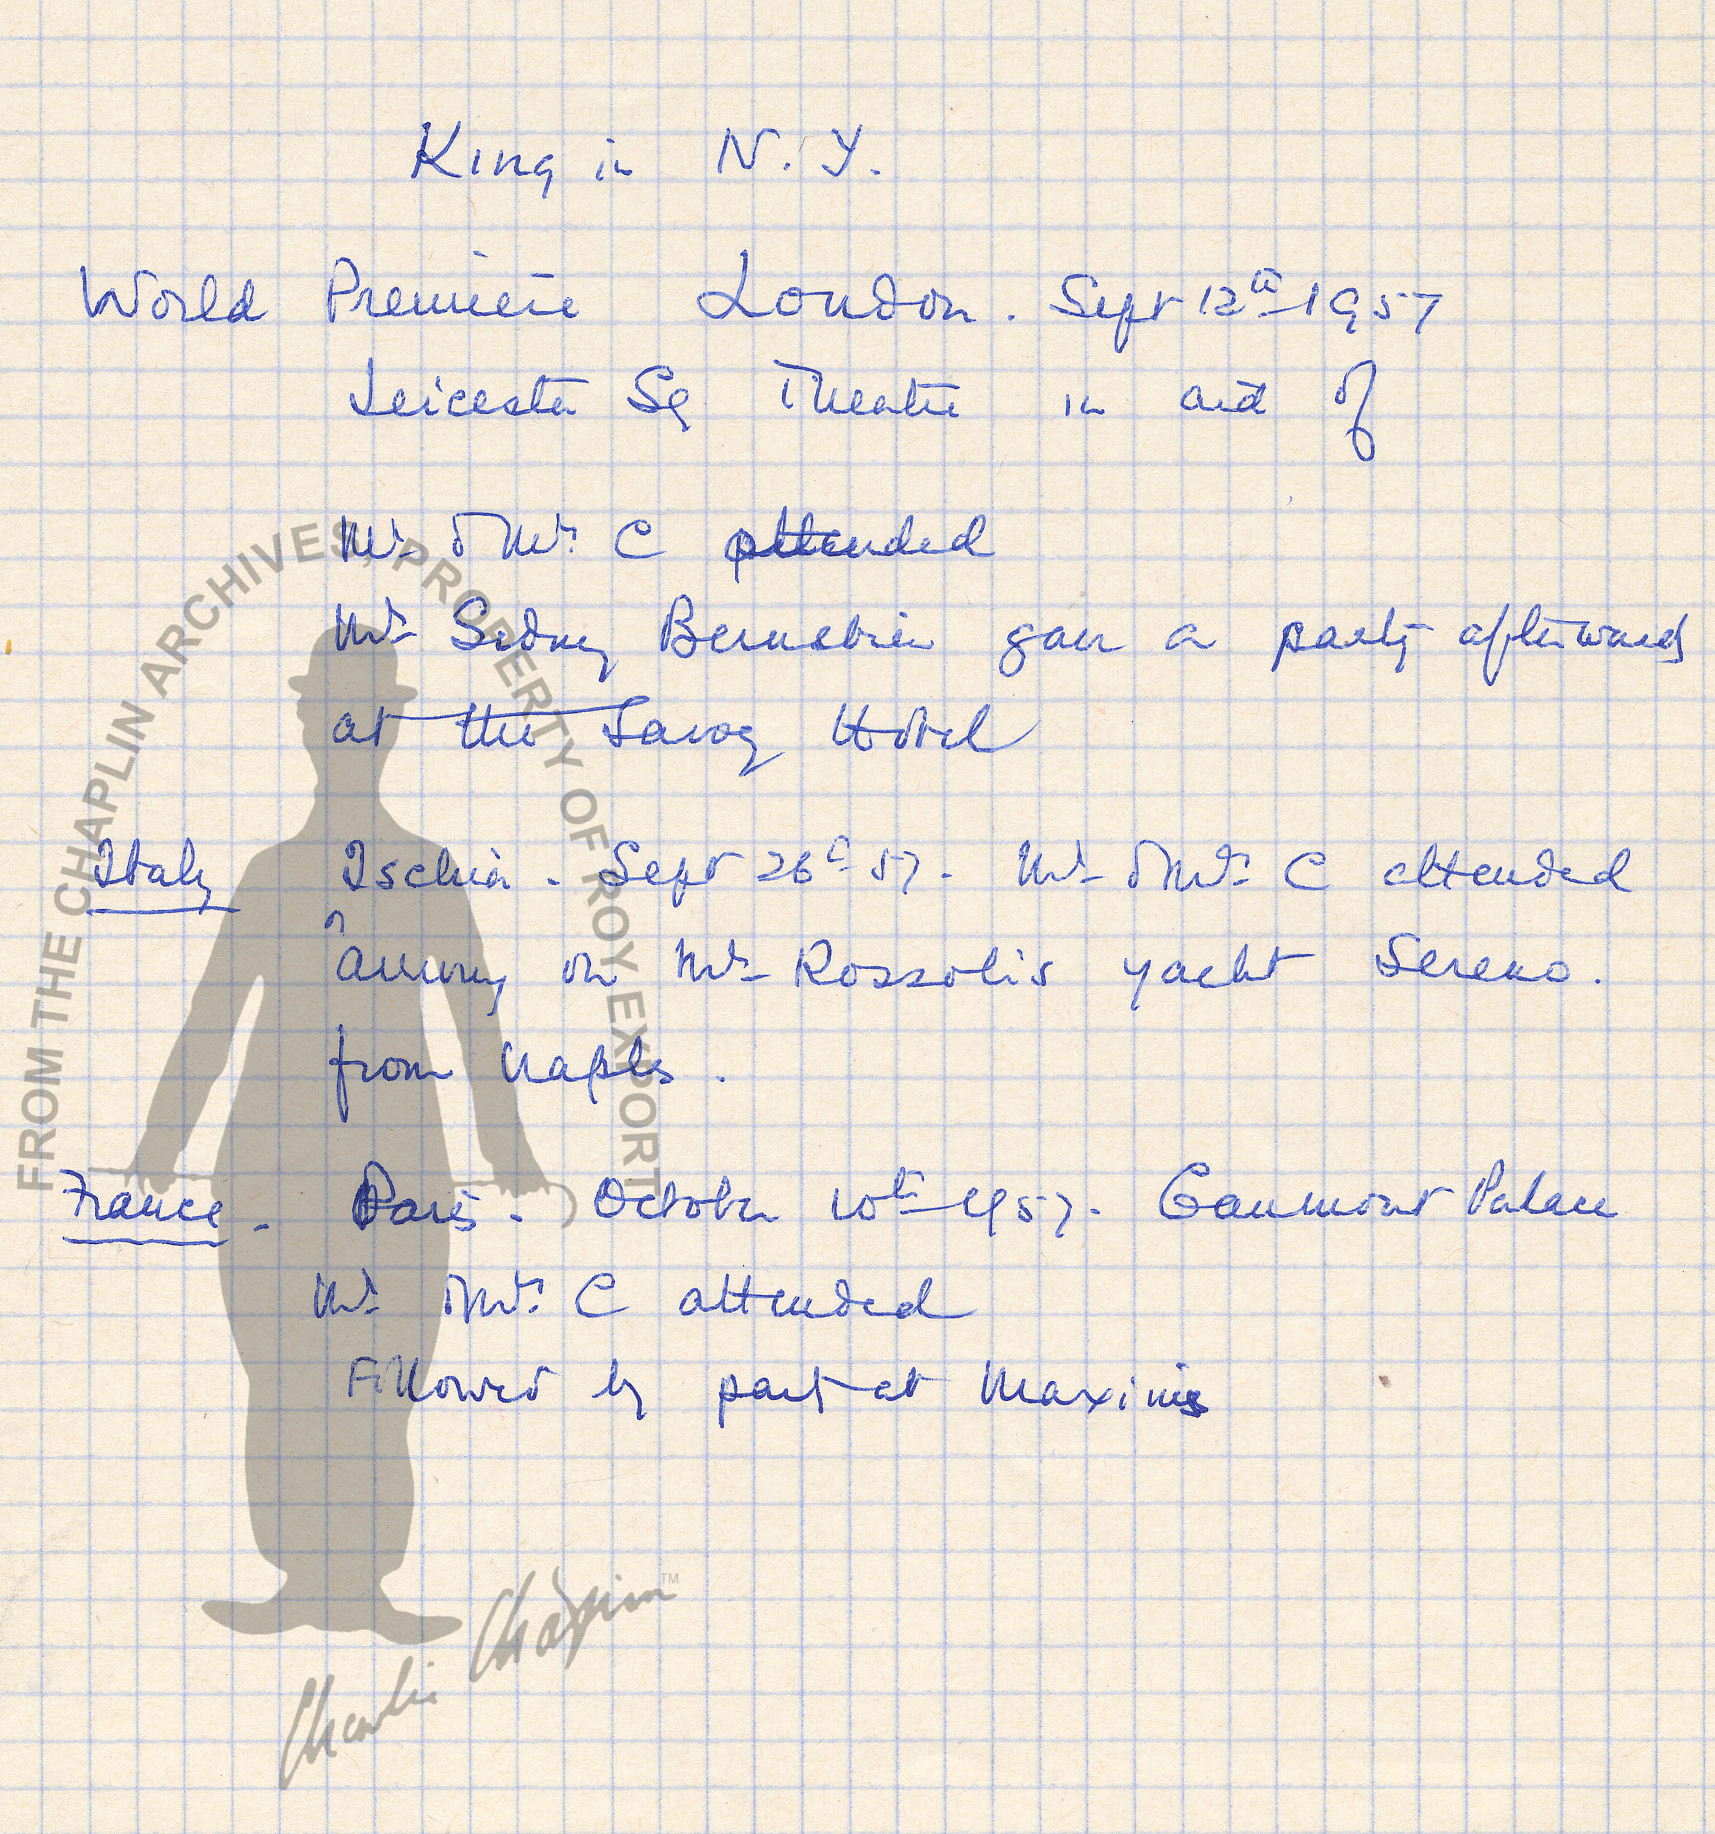 King in N.Y.
World Première London. Sept 12th 1957
Leicester Sq Theatre in aid of
Mr. & Mrs. C attended
Mr. Sidney Bernstein gave a party afterwards
at the Savoy Hotel
Italy Ischia. Sept 26th 57. Mr. & Mrs. C attended
arriving on Mr. Rozzolis yacht Sereno.
from Naples.
France. Paris. October 10th 1957. Gaumont Palace
Mr. & Mrs. C attended
Followed by party at Maxims
FROM THE CHAPLIN ARCHIVES, PROPERTY OF ROY EXPORT
Charlie Chaplin TM